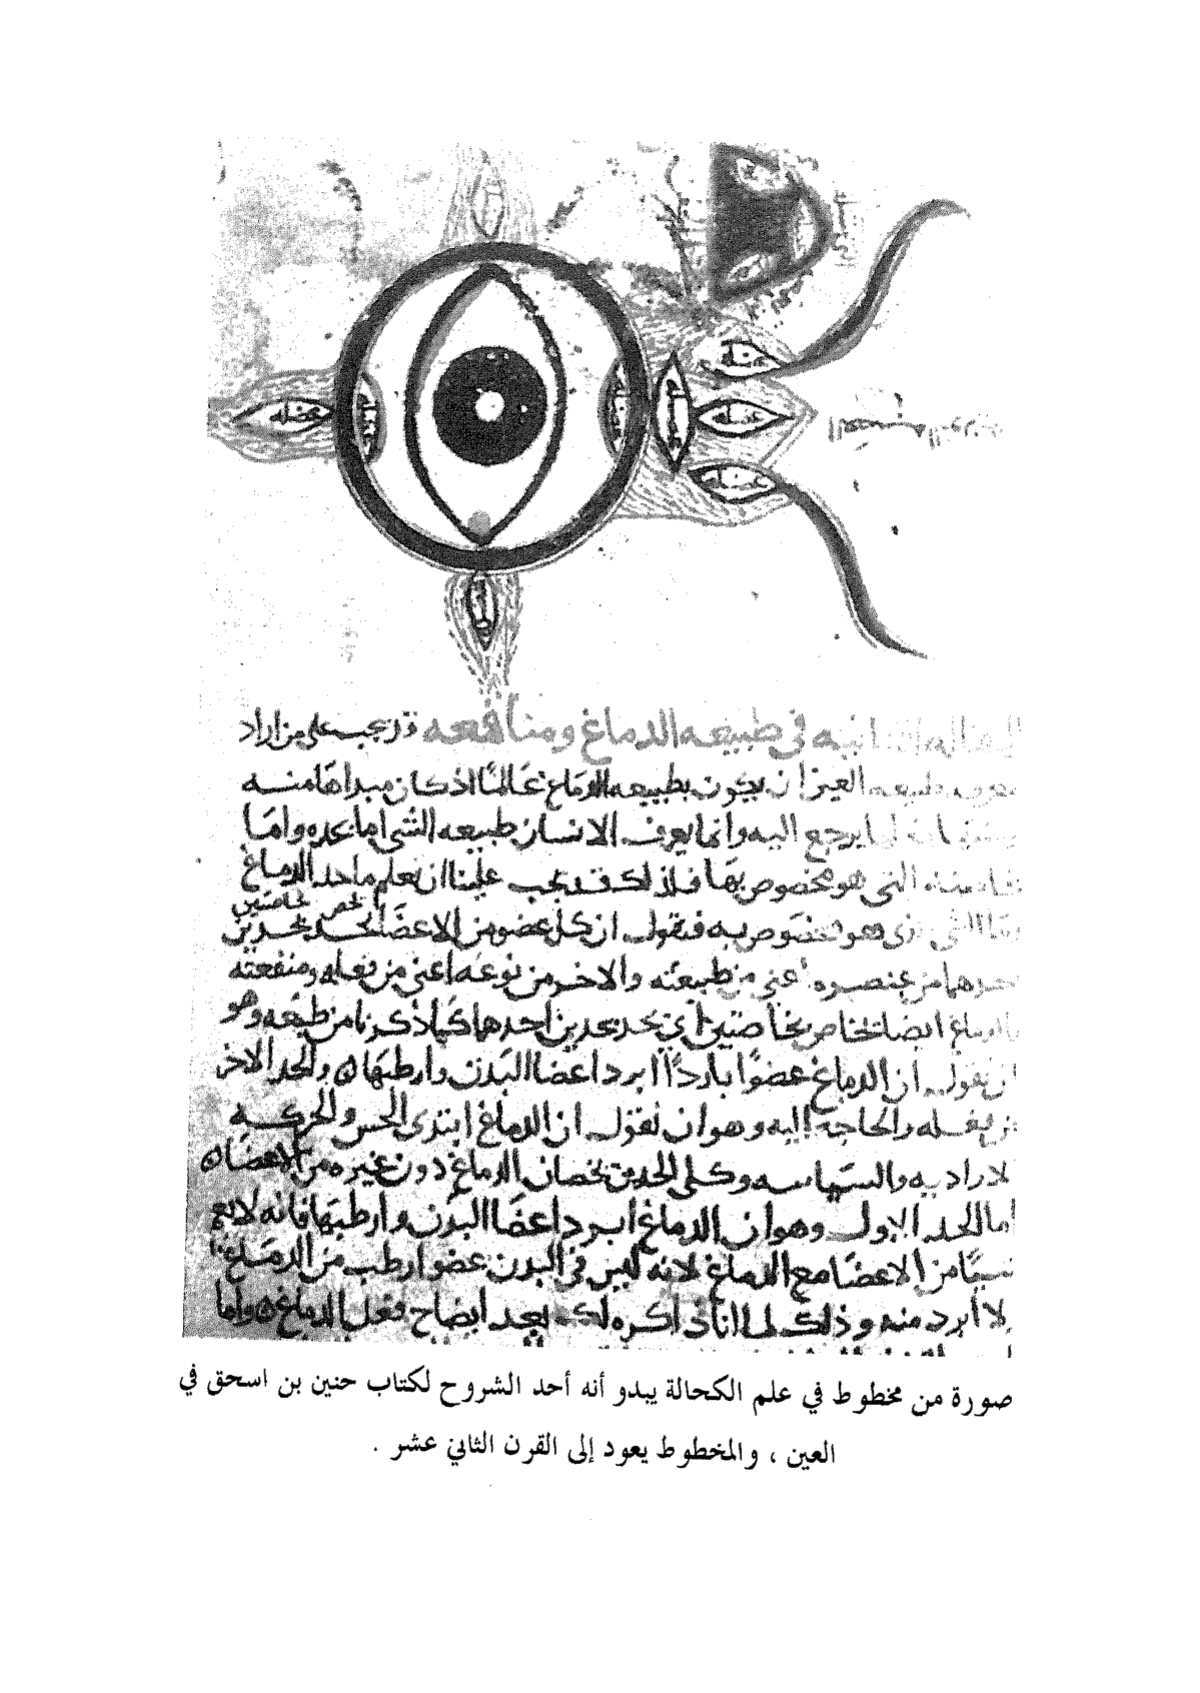 عضله
عضله
عضله
عضله
عضله
عضله
عضله
العصبه النوريه
المقاله الثانيه في طبيعه الدماغ ومنافعه قد يجب على من اراد
معرفه طبيعه العين ان يكون بطبيعه الدماغ عالمًا اذ كان مبداها منه
لما يرجع اليه وانما يعرف الانسان طبيعه الشي اما بحده واما
التي هو مخصوص بها فلذلك قد يجب علينا ان نعلم ما حد الدماغ
وما الشي الذي هو مخصوص به فنقول ان كل عضو من الاعضا يحد بحدين
الخص خاصتين
احدهما من عنصره اعني من طبيعته والاخر من نوعه اعني من فعله ومنفعته
والدماغ ايضا الخاص بخاصتين اي يحد بحدين احدهما كما ذكرنا من طبعه وهو
ان نقول ان الدماغ عضوًا باردًا ابرد اعضا البدن وارطبها ه والحد الاخر
من فعله والحاجه اليه وهو ان نقول ان الدماغ ابتدى الحس والحركه
الاراديه والسياسه وكلي الحدين تخصان الدماغ دون غيره من الاعضا ه
اما الحد الاول وهو ان الدماغ ابرد اعضا البدن وارطبها فانه لا يعم
شيًا من الاعضا مع الدماغ لانه ليس في البدن عضو ارطب من الدماغ
لا ابرد منه وذلك لما انا ذاكره لك بعد ايضاح فعل الدماغ ه واما
صورة من مخطوط في علم الكحالة يبدو أنه أحد الشروح لكتاب حنين بن اسحق في
العين ، والمخطوط يعود إلى القرن الثاني عشر .